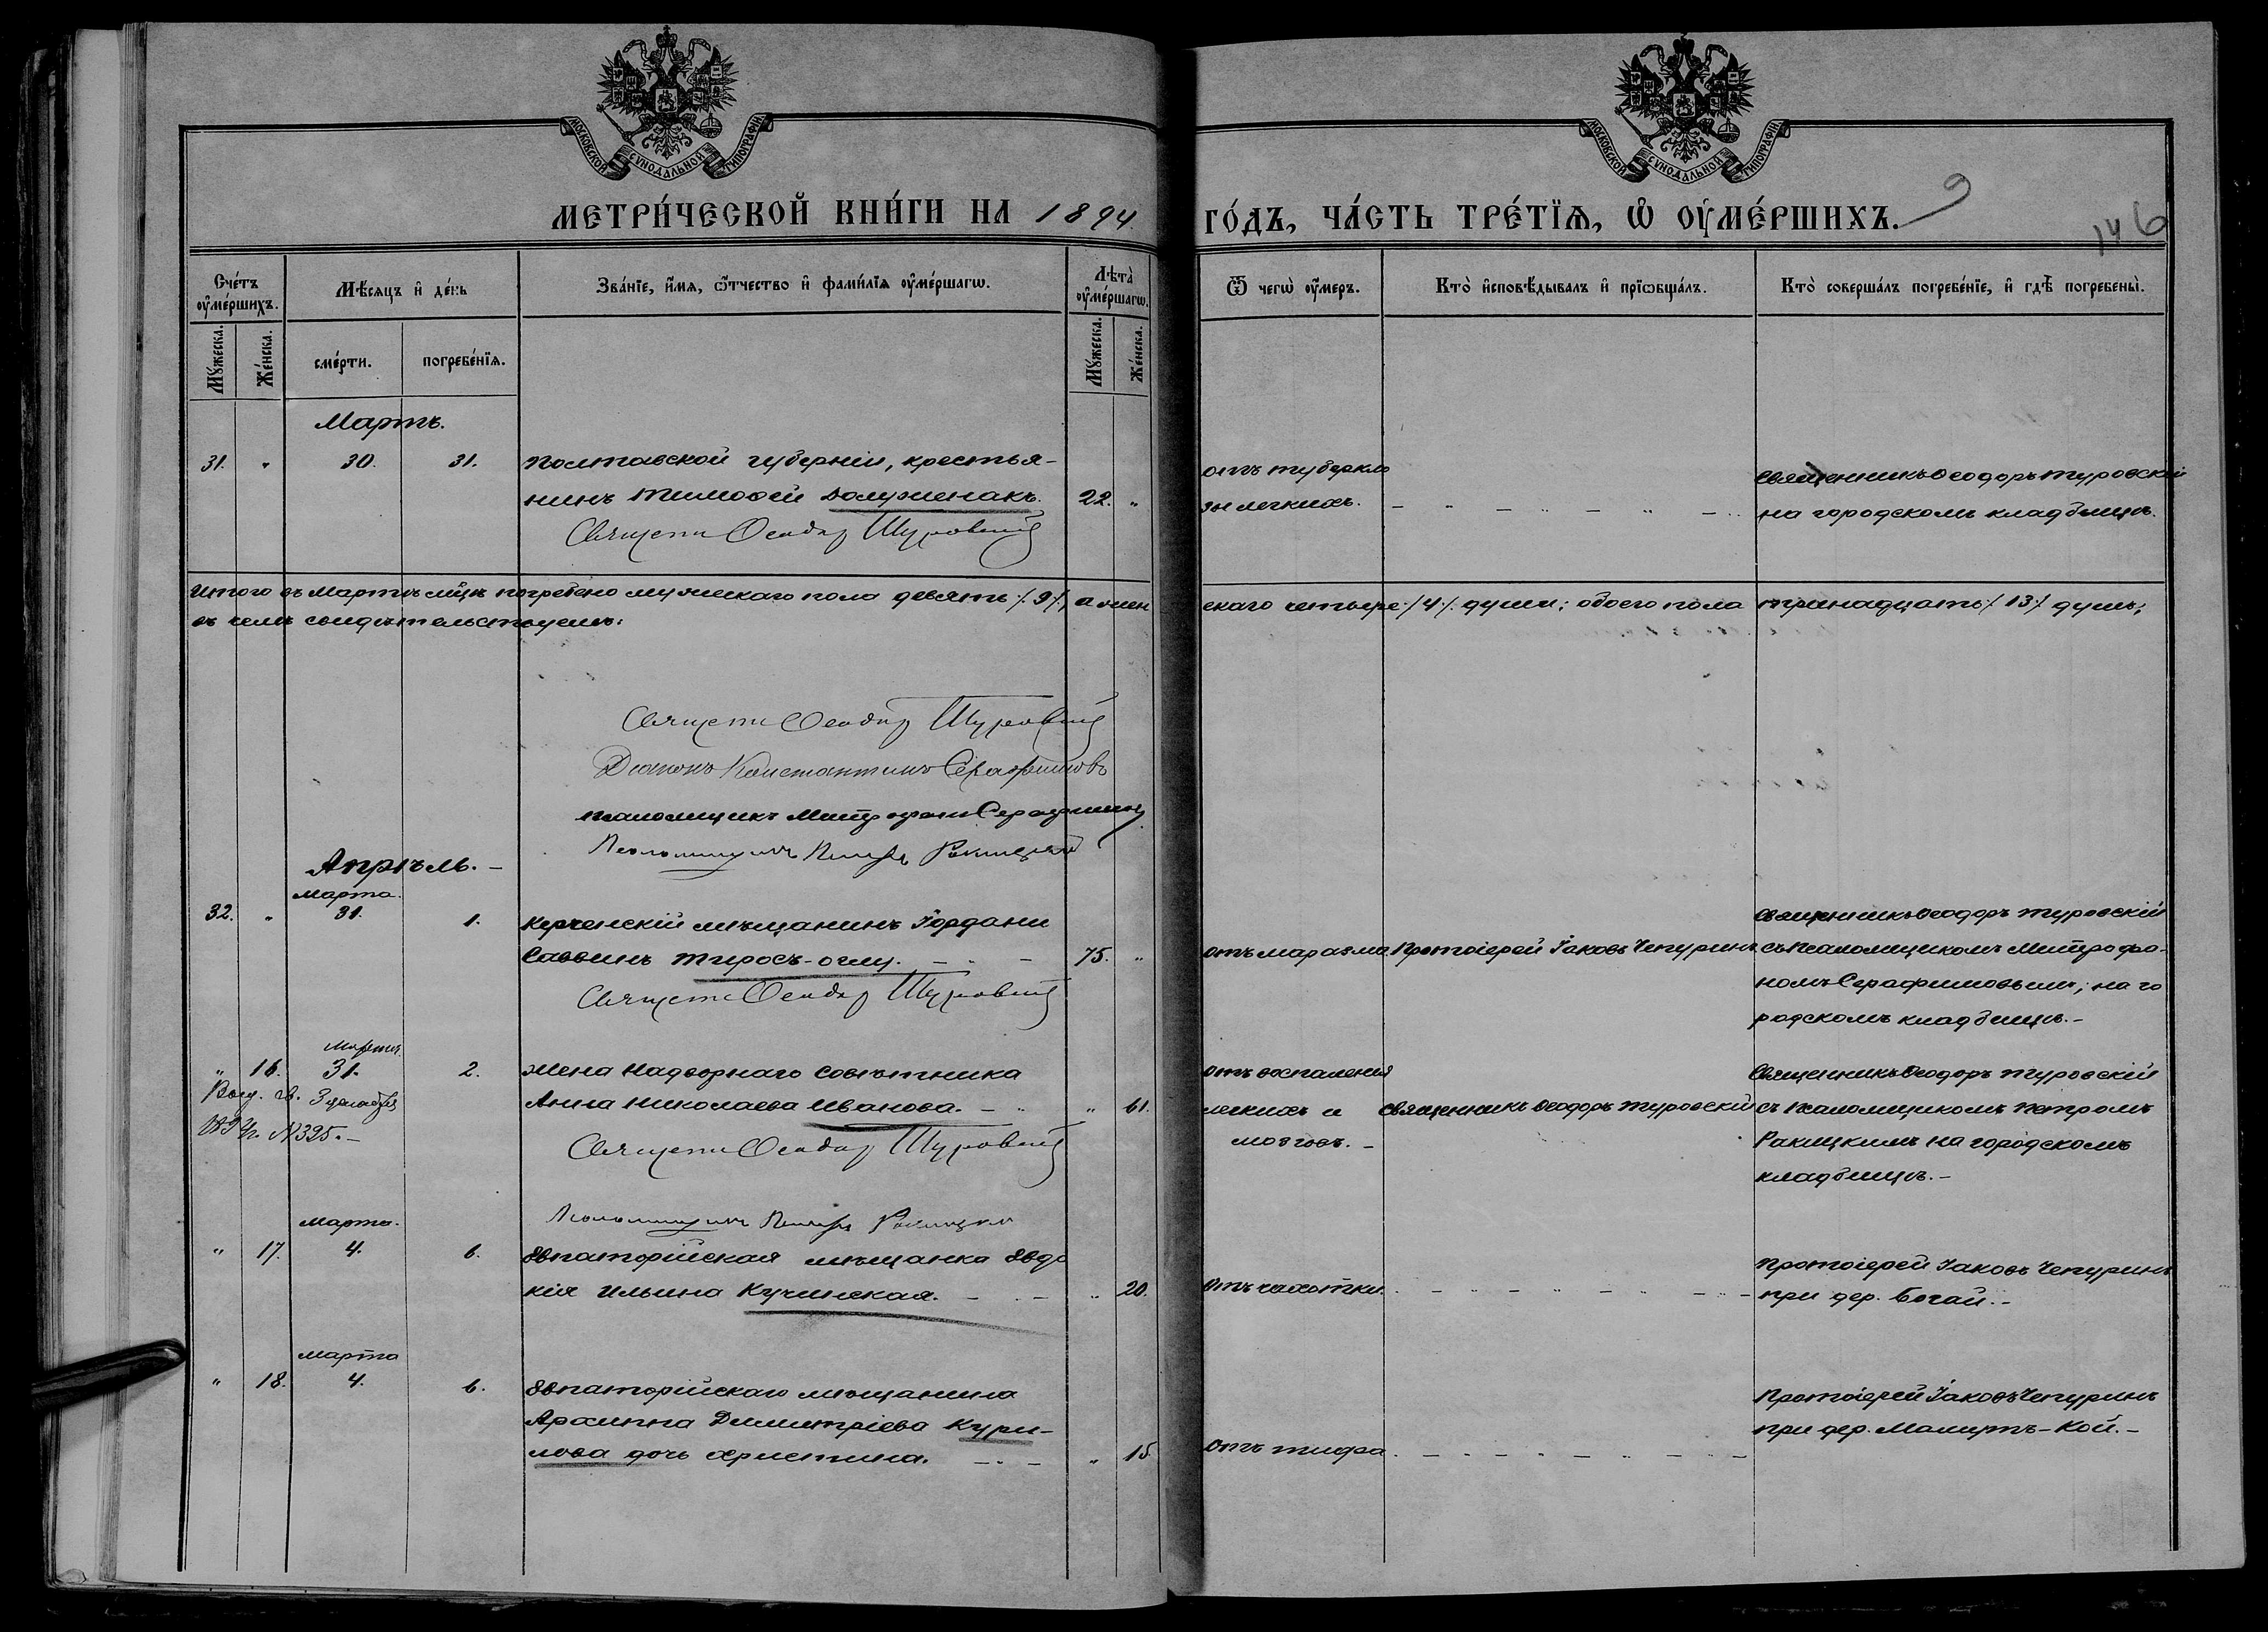 МОСКОВСКОЙ СѴНОДАЛЬНОЙ ТИПОГРАФІИ
МОСКОВСКОЙ СѴНОДАЛЬНОЙ ТИПОГРАФІИ
МЕТРИ́ЧЕСКОЙ КНИ́ГИ НА 1894. ГО́ДЪ, ЧА́СТЬ ТРЕ́ТЇѦ, Ѡ҆ ОУ҆МЕ́РШИХЪ.
9
146
Сче́тъ оу҆ме́ршихъ.
Мѣ́сяцъ и҆ де́нь
Зва́нїе, и҆́мя, ѻ҆́тчество и҆ фами́лїя оу҆ме́ршагѡ.
Лѣта̀ оу҆ме́ршагѡ.
Ѿ чегѡ̀ оу҆́меръ.
Кто̀ и҆сповѣ́дывалъ и҆ прїѡбща́лъ.
Кто̀ соверша́лъ погребе́нїе, и҆ гдѣ̀ погребены̀.
Мꙋ́жеска.
Же́нска.
сме́рти.
погребе́нїя.
Мꙋ́жеска.
Же́нска.
Мартъ.
31. " 30. 31. Полтавской губерніи, крестья-
нинъ Тимофей Долуженакъ. 22. "
Священн Ѳеодор Туровский
отъ туберкло
зы легкихъ.
Священникъ Ѳеодоръ Туровскій
на городскомъ кладбищѣ.
Итого въ Мартѣ мцѣ погребено мужескаго пола девять /9/, а жен
скаго четыре /4/ души; обоего пола тринадцать /13/ душъ;
въ чемъ свидѣтельствуемъ:
Священн Ѳеодор Туровский
Діаконъ Константинъ Серафимовъ
Псаломщикъ Митрофанъ Серафимовъ
Псаломщикъ Петръ Ракицкий
Апрѣль. -
марта.
32. " 31. 1. Керченскій мѣщанинъ Іордани
Саввинъ Тиросъ-оглу. 75. "
Священн Ѳеодор Туровский
отъ маразма Протоіерей Іаковъ Чепуринъ
Священникъ Ѳеодоръ Туровскій
съ Псаломщикомъ Митрофа-
номъ Серафимовымъ; на го
родскомъ кладбищѣ. -
марта.
" 16. 31. 2. Жена Надворнаго Совѣтника
Анна Николаева Иванова. - " 61.
Выд. св. 3 декабря
1894г. N 325. -
Священн Ѳеодор Туровский
Псаломщикъ Петръ Ракицкий
отъ воспаленія
легкихъ и
мозговъ. -
Священникъ Ѳеодоръ Туровскій
Священникъ Ѳеодоръ Туровскій
съ Псаломщикомъ Петромъ
Ракицкимъ на городскомъ
кладбищѣ. -
марта.
" 17. 4. 6. Евпаторійская мѣщанка Евдо
кія Ильина Кучинская. - " 20.
Отъ чахотки.
Протоіерей Іаковъ Чепуринъ
при дер. Богай. -
марта
" 18. 4. 6. Евпаторійскаго мѣщанина
Архиппа Димитріева Кури-
лова дочь Христина. " 15
Отъ тифа.
Протоіерей Іаковъ Чепуринъ
при дер. Мамутъ-Кой. -